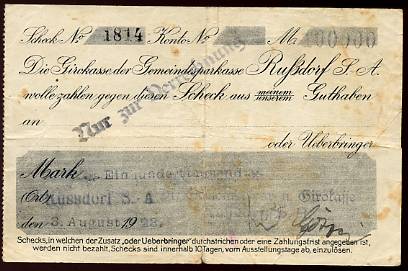 Scheck No 1814 Konto No M. 100000
Die Girokasse der Gemeindesparkasse Rußdorf S. A.
wolle zahlen gegen diesen Scheck aus meinem unserem Guthaben
Nur zur Verrechnung
an
oder Ueberbringer
Mark Einhunderttausend
Ort: Russdorf S.-A Girokasse
den 3. August 1923.
Schecks, in welchen der Zusatz „oder Ueberbringer“ durchstrichen oder eine Zahlungsfrist angegeben ist,
werden nicht bezahlt, Schecks sind innerhalb 10 Tagen, vom Ausstellungstage ab, einzulösen.